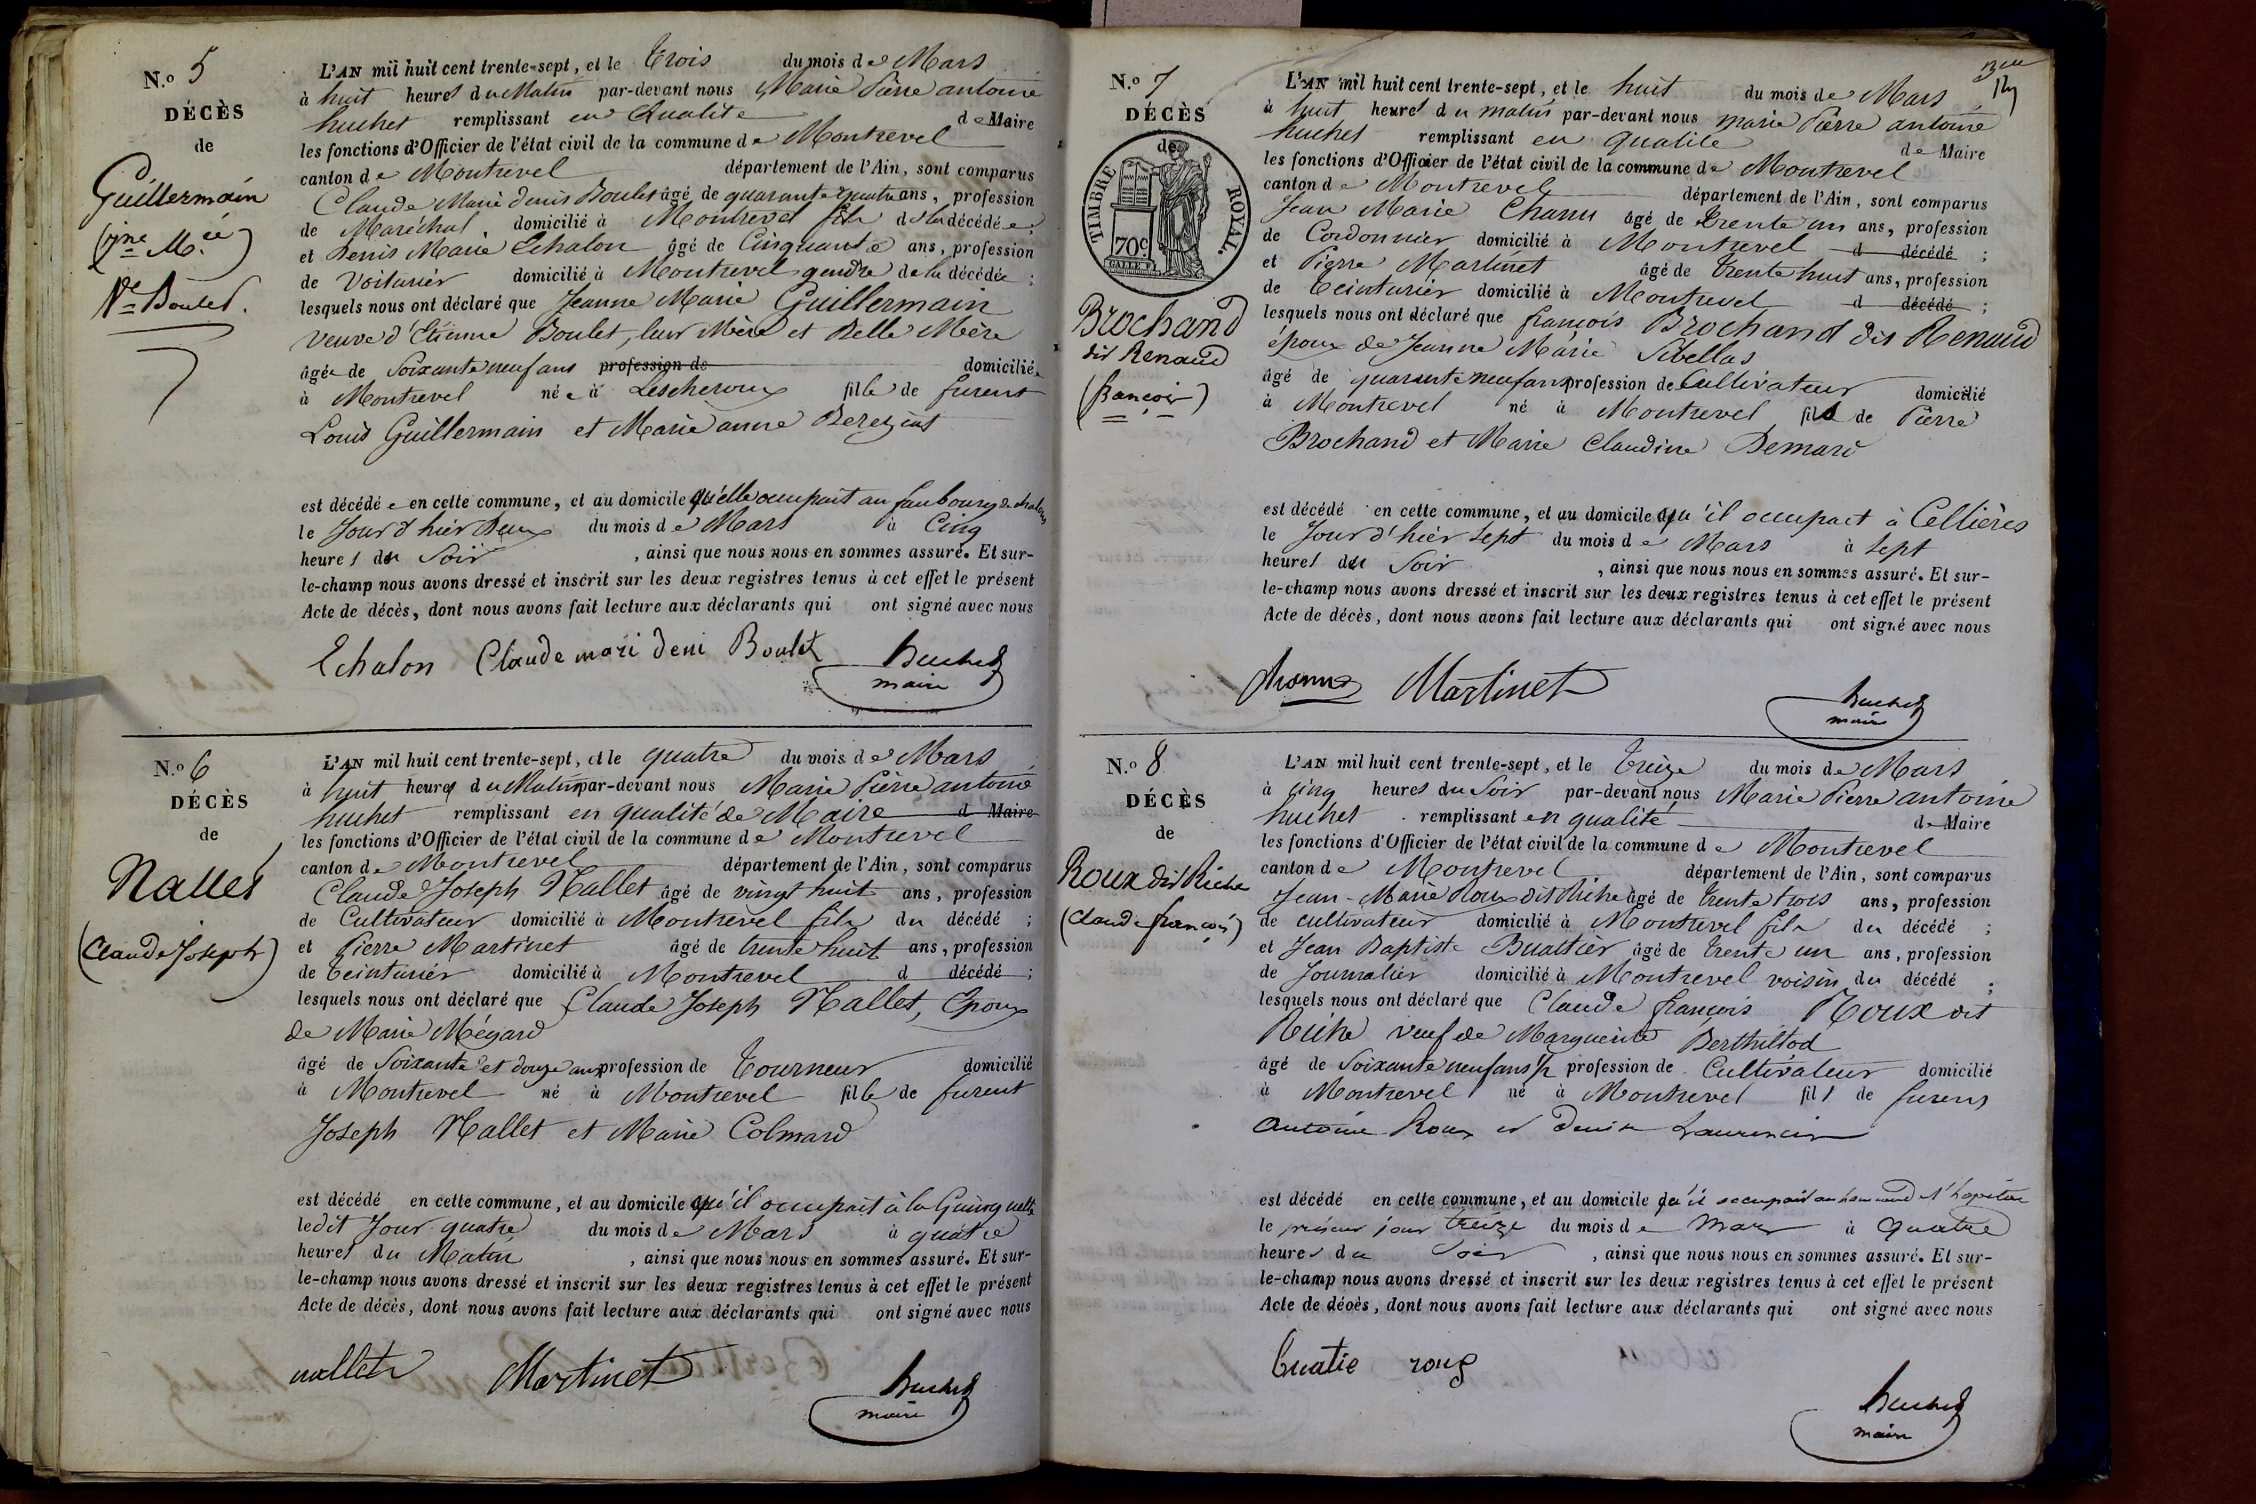 N.o 5
DÉCÈS
de
Guillermain
(jne Mie)
Ve Boulet.
L'AN mil huit cent trente-sept, et le trois du mois de Mars
à huit heures du Matin par-devant nous Marie Pierre antoine
huchet remplissant en Qualité de Maire
les fonctions d'Officier de l'état civil de la commune de Montrevel
canton de Montrevel département de l'Ain, sont comparus
Claude Marie denis Boulet âgé de quarante quatre ans, profession
de Maréchal domicilié à Montrevel fils de la décédée;
et Denis Marie Echalon âgé de Cinquante ans, profession
de Voiturier domicilié à Montrevel gendre de la décédée;
lesquels nous ont déclaré que Jeanne Marie Guillermain
veuve d'Etienne Boulet, leur Mère et Belle Mère
âgée de Soixante neuf ans profession de domiciliée
à Montrevel née à Lescheroux fille de furent
Louis Guillermain et Marie anne Bereziat
est décédée en cette commune, et au domicile qu'elle occupait au faubourg de chalons
le Jour d'hier Deux du mois de Mars à Cinq
heures du Soir, ainsi que nous nous en sommes assuré. Et sur-
le-champ nous avons dressé et inscrit sur les deux registres tenus à cet effet le présent
Acte de décès, dont nous avons fait lecture aux déclarants qui ont signé avec nous
Echalon Claude mari deni Boulet huchet
maire
N.o 6
DÉCÈS
de
Nallet
(Claude Joseph)
L'AN mil huit cent trente-sept, et le quatre du mois de Mars
à huit heures du Matin par-devant nous Marie Pierre antoine
huchet remplissant en qualité de Maire d Maire
les fonctions d'Officier de l'état civil de la commune de Montrevel
canton de Montrevel département de l'Ain, sont comparus
Claude Joseph Nallet âgé de vingt huit ans, profession
de Cultivateur domicilié à Montrevel fils du décédé;
et Pierre Martinet âgé de trente huit ans, profession
de teinturier domicilié à Montrevel d décédé;
lesquels nous ont déclaré que Claude Joseph Nallet, Epoux
de Marie Mégard
âgé de Soixante et douze ans profession de Tourneur domicilié
à Montrevel né à Montrevel fils de furent
Joseph Nallet et Marie Colmard
est décédé en cette commune, et au domicile qu'il occupait à la Guinguette
le dit Jour quatre du mois de Mars à quatre
heures du Matin, ainsi que nous nous en sommes assuré. Et sur-
le-champ nous avons dressé et inscrit sur les deux registres tenus à cet effet le présent
Acte de décès, dont nous avons fait lecture aux déclarants qui ont signé avec nous
nallet Martinet huchet
maire
N.o 7
DÉCÈS
de
TIMBRE ROYAL.
70c.
Brochand
dit Renaud
(françois)
L'AN mil huit cent trente-sept, et le huit du mois de Mars
à huit heures du matin par-devant nous marie Pierre antoine
huchet remplissant en qualité de Maire
les fonctions d'Officier de l'état civil de la commune de Montrevel
canton de Montrevel département de l'Ain, sont comparus
Jean Marie Chanu âgé de trente un ans, profession
de Cordonnier domicilié à Montrevel d décédé;
et Pierre Martinet âgé de trente huit ans, profession
de teinturier domicilié à Montrevel d décédé;
lesquels nous ont déclaré que françois Brochand dit Renaud
époux de Jeanne Marie Sibellas
âgé de quarante neuf ans profession de Cultivateur domicilié
à Montrevel né à Montrevel fils de Pierre
Brochand et Marie Claudine Bemard
est décédé en cette commune, et au domicile qu'il occupait à Cellières
le Jour d'hier sept du mois de Mars à sept
heures du Soir, ainsi que nous nous en sommes assuré. Et sur-
le-champ nous avons dressé et inscrit sur les deux registres tenus à cet effet le présent
Acte de décès, dont nous avons fait lecture aux déclarants qui ont signé avec nous
Martinet huchet
maire
N.o 8
DÉCÈS
de
Roux dit Riche
(Claude françois)
L'AN mil huit cent trente-sept, et le treize du mois de Mars
à cinq heures du Soir par-devant nous Marie Pierre antoine
huchet remplissant en qualité de Maire
les fonctions d'Officier de l'état civil de la commune de Montrevel
canton de Montrevel département de l'Ain, sont comparus
Jean-Marie Roux dit Riche âgé de trente trois ans, profession
de cultivateur domicilié à Montrevel fils du décédé;
et Jean Baptiste Buattier âgé de trente un ans, profession
de Journalier domicilié à Montrevel voisin du décédé;
lesquels nous ont déclaré que Claude françois Roux dit
Riche veuf de Marguerite Berthillod
âgé de Soixante neuf ans profession de Cultivateur domicilié
à Montrevel né à Montrevel fils de furens
Antoine Roux et Denise Laurencin
est décédé en cette commune, et au domicile qu'il occupait au
le présent jour treize du mois de mars à quatre
heures du Soir, ainsi que nous nous en sommes assuré. Et sur-
le-champ nous avons dressé et inscrit sur les deux registres tenus à cet effet le présent
Acte de décès, dont nous avons fait lecture aux déclarants qui ont signé avec nous
buatie roux huchet
maire